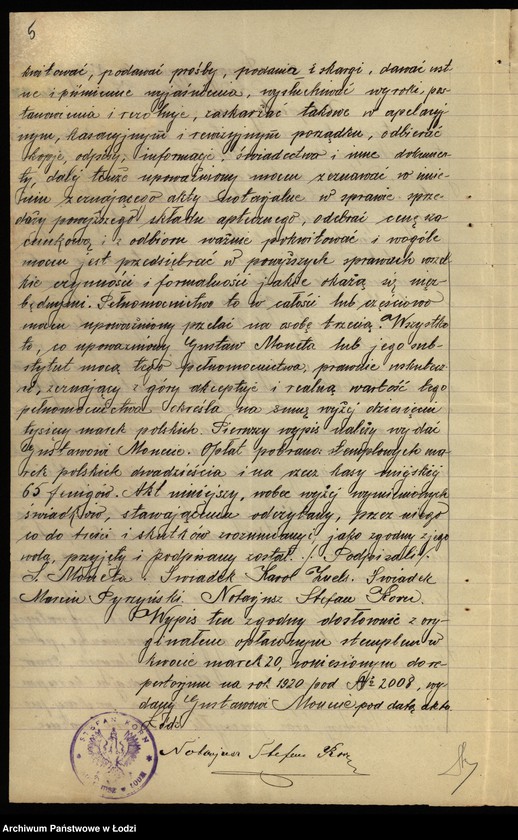 5
kwitować, podawać prośby, podania i skargi, dawać ust-
ne i piśmienne wyjaśnienia, wysłuchiwać wyroki, pos-
tanowienia i rezolucje, zaskarżać takowe w apelacyj-
nym, kasacyjnym i rewizyjnym porządku, odbierać
kopje, odpisy, informacje, świadectwa i inne dokumen-
ty, dalej tenże upoważniony mocen zeznawać w imie-
niu zeznającego akty notarjalne w sprawie sprze-
daży powyższego składu aptecznego, odebrać cenę sza-
cunkową i z odbioru ważnie pokwitować i wogóle
mocen jest przedsiębrać w powyższych sprawach wszel-
kie czynności i formalności jakie okażą się niez-
będnymi. Pełnomocnictwo to w całości lub częściowo
mocen upoważniony przelać na osobę trzecią. Wszystko
to, co upoważniony Gustaw Moneta lub jego sub-
stytut mocą tego pełnomocnictwa prawnie uskutecz-
ni, zeznający z góry akceptuje i realną wartość tego
pełnomocnictwa określa na sumę wyżej dziesięciu
tysięcy marek polskich. Pierwszy wypis należy wydać
Gustawowi Monecie. Opłat pobrano: stemplowych ma-
rek polskich dwadzieścia i na rzecz kasy miejskiej
65 fenigów. Akt niniejszy, wobec wyżej wymienionych
świadków, stawającemu odczytany, przez niego
co do treści i skutków zrozumiany, jako zgodny z jego
wolą, przyjęty i podpisany został. /-/ Podpisali:
J. Moneta. Świadek Karol Świadek
Marcin Pyrzyński Notarjusz Stefan Korn.
Wypis ten zgodny dosłownie z ory-
ginałem opłaconym stemplem w
kwocie marek 20, wniesionym do re-
pertorjum na rok 1920 pod № 2008, wy-
dany Gustawowi Monecie pod datą aktu.
Łódź.
STEFAN KORN
Notarjusz Stefan Korn
Archiwum Państwowe w Łodzi